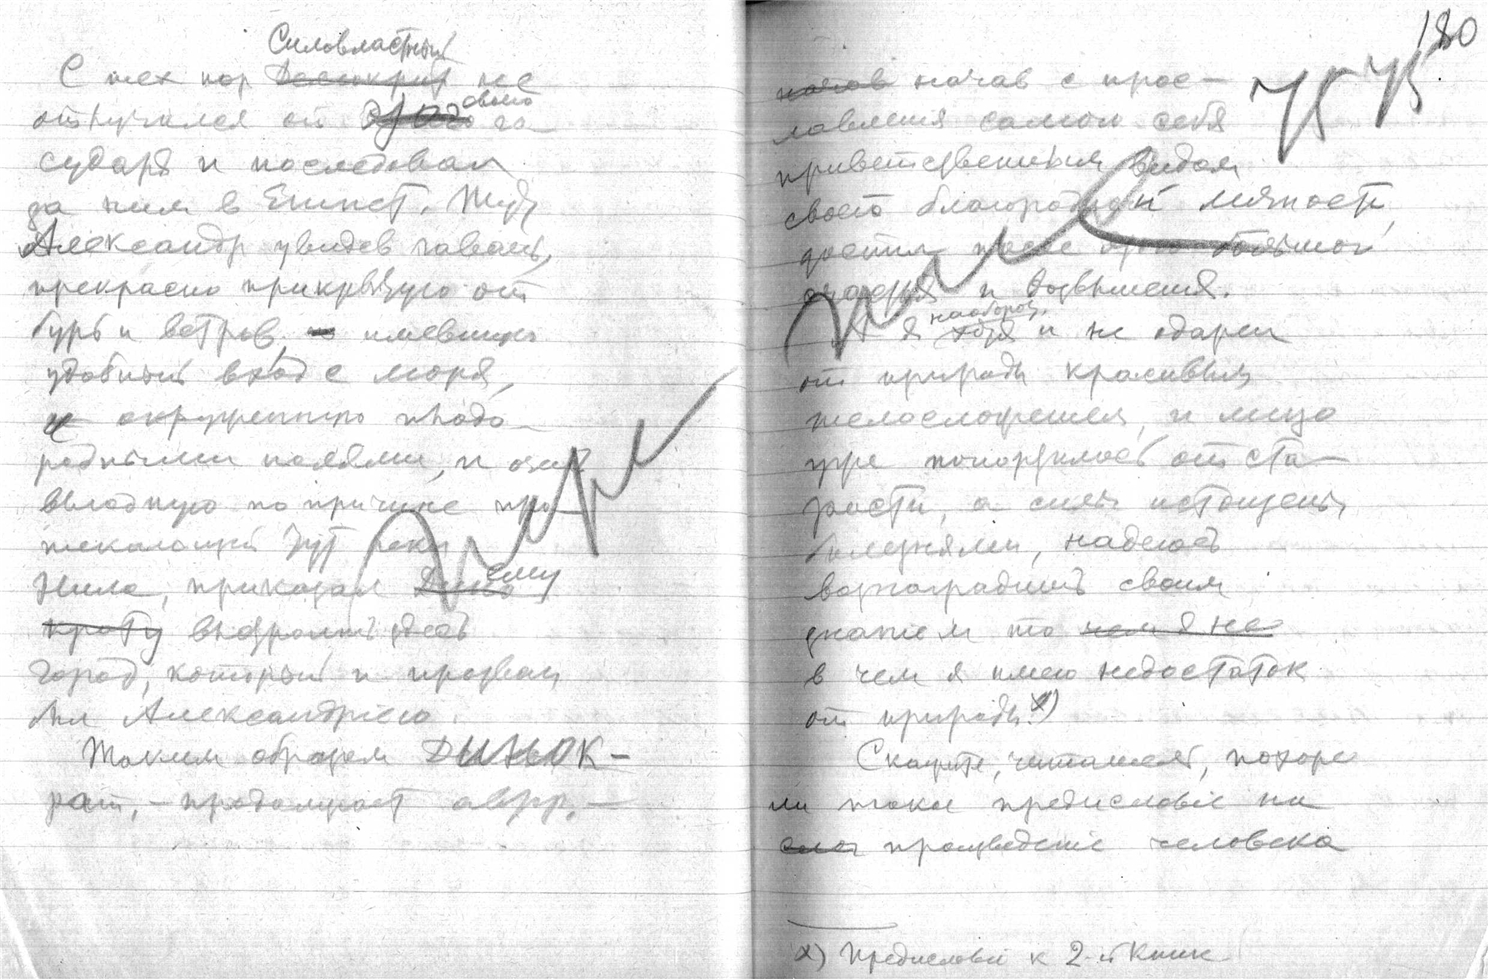 Силовластный
С тех пор Динократ не
отлучался от своего го-
сударя и последовал
за ним в Египет. Тут
Александр увидев гавань,
прекрасно прикрытую от
бурь и ветров, имевшую
удобный вход с моря,
и окруженную плодо-
родными полями, и очень
выгодную по причине про-
текающей тут реки
Нила, приказал ему
крату выстроить здесь
город, который и прозван
был Александрією.
Таким образом Динок-
рат, – продолжает автор, –
180
75 75
начав начав с прос-
лавления самого себя
приветственным видом
своего благородной личности,
достиг после того большой
счастья и возвышения.
А я наоборот и не одарен
от природы красивым
телосложением, и лицо
уже покорилось от ста-
рости, а силы истощены
болезнями, надеюсь
вознаградить своим
знанием то чем я не
в чем я имею недостаток
от природы х)
Скажите, читатель, похоже
ли такое предисловіе на
произведеніе человека
х) Предисловіе к 2-й Книге